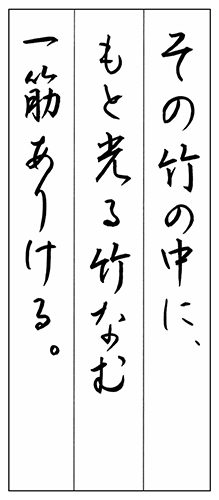 その竹の中に、
もと光る竹なむ
一筋ありける。